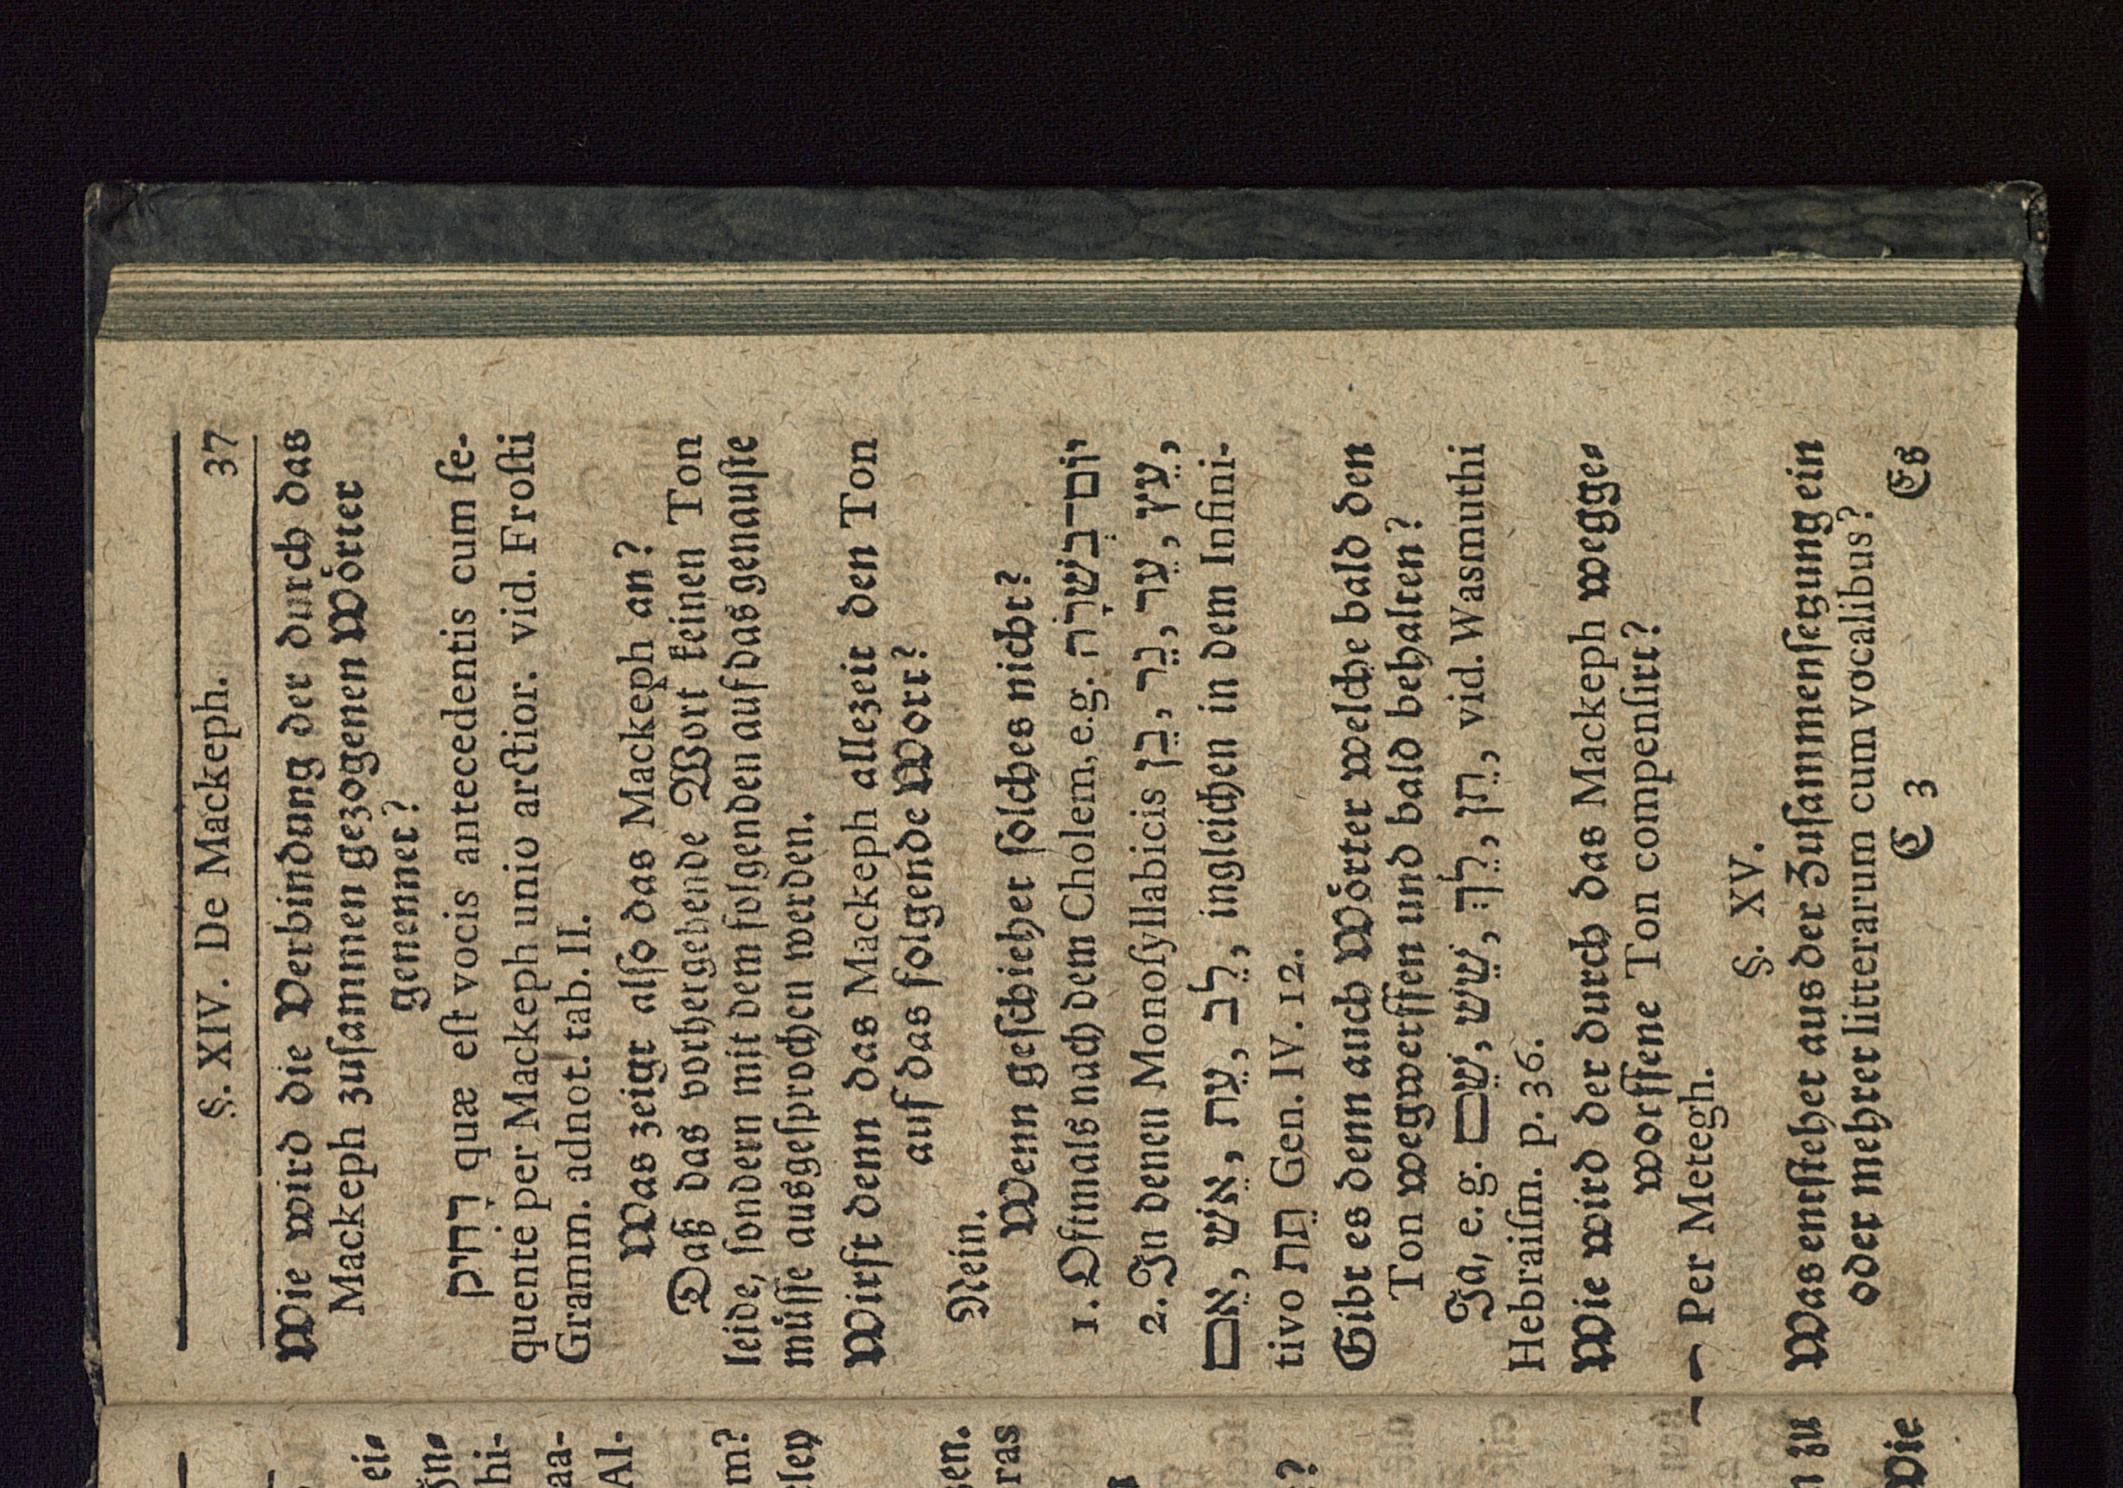 §. XIV. De Mackeph. 37
Wie wird die Verbindung der durch das
Mackeph zusammen gezogenen Wörter
genennet?
רָחִיק quæ eſt vocis antecedentis cum ſe-
quente per Mackeph unio arctior. vid. Froſti
Gramm. adnot. tab. II.
Was zeigt alſo das Mackeph an?
Daß das vorhergehende Wort keinen Ton
leide, ſondern mit dem folgenden auf das genauſte
müſſe ausgeſprochen werden.
Wirft denn das Mackeph allezeit den Ton
auf das folgende Wort?
Nein.
Wenn geſchiehet ſolches nicht?
1. Oftmals nach dem Cholem, e.g. יוֹם־בְּשׂרָה
2. In denen Monoſyllabicis בֵן, נֵר, עֵר, עֵץ,
אֵם, אֵשׁ, עֵת, לֵב, ingleichen in dem Infini-
tivo תֵת Gen. IV. 12.
Gibt es denn auch Wörter welche bald den
Ton wegwerffen und bald behalten?
Ja, e.g. שֵׁם, שֵׁשׁ, לֵךְ, חֵן, vid. Wasmuthi
Hebraiſm. p. 36.
Wie wird der durch das Mackeph wegge-
worffene Ton compenſirt?
Per Metegh.
§. XV.
Was entſtehet aus der Zuſammenſetzung ein
oder mehrer litterarum cum vocalibus?
C 3 Es
ei-
hi-
aa-
Al-
m?
len
gen.
ras
?
n zu
Wie